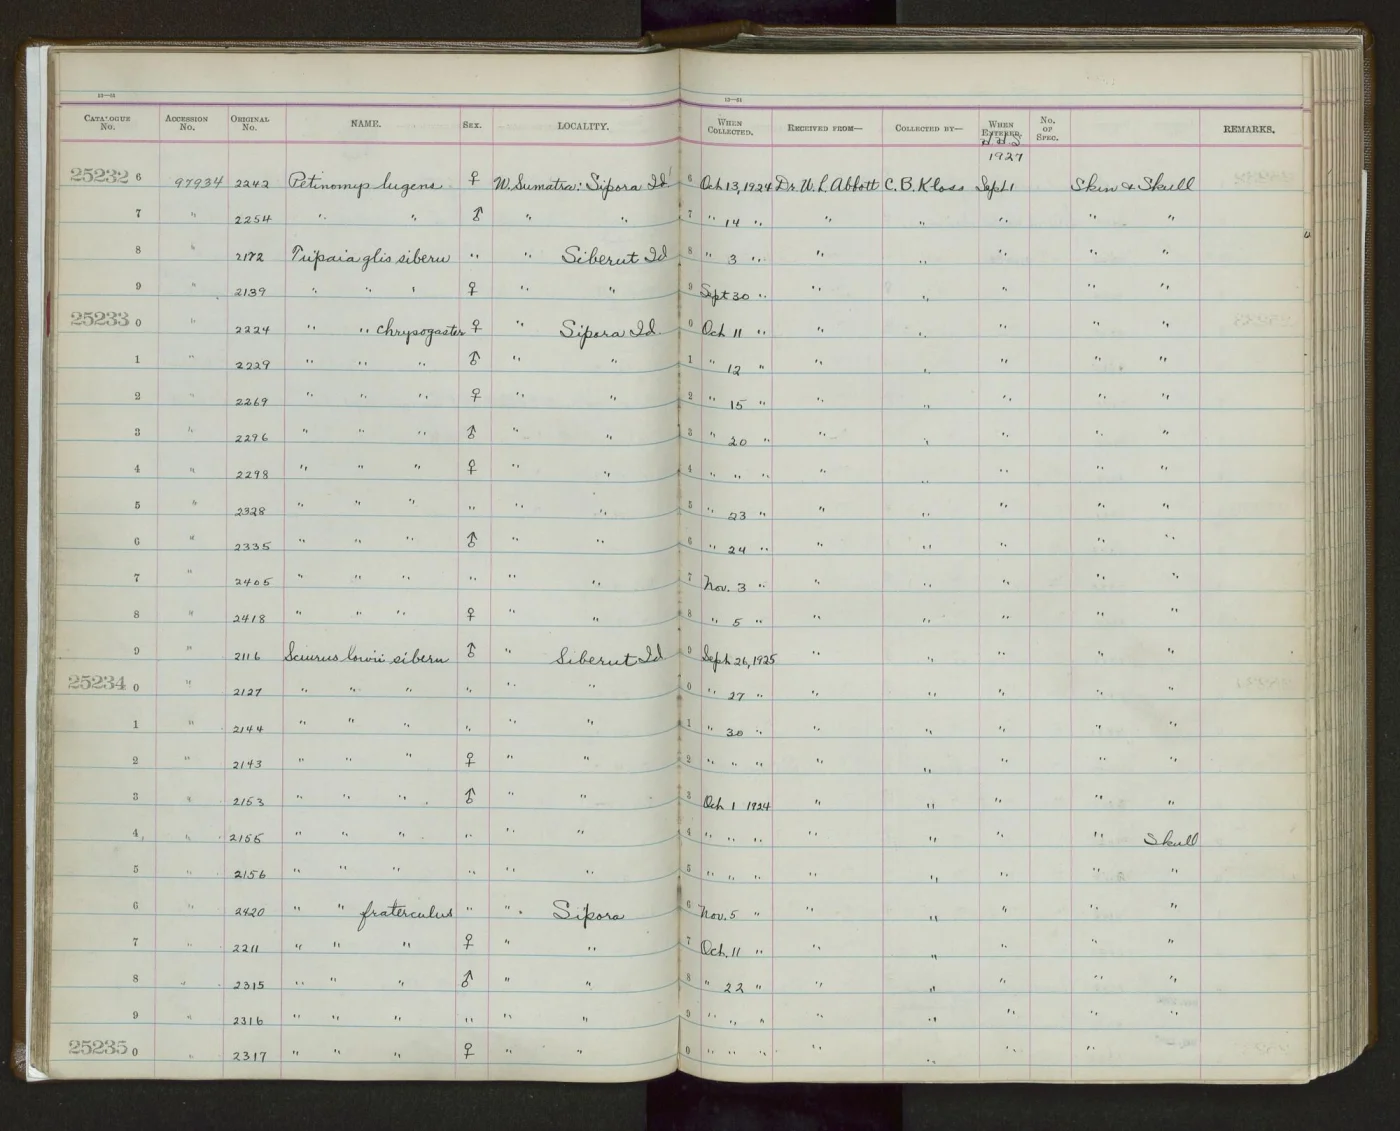 13—51 13—51
CATALOGUE No. ACCESSION No. ORIGINAL No. NAME. SEX. LOCALITY. WHEN COLLECTED. RECEIVED FROM— COLLECTED BY— WHEN ENTERED. No. OF SPEC. REMARKS.
1927
25232 6 97934 2242 Petinomys lugens ♀ W. Sumatra: Sipora Id 6 Oct 13, 1924 Dr. W. L. Abbott C. B. Kloss Sept 1 Skin & Skull
7 " 2254 " " ♂ " " 7 " 14 " " " " " "
8 " 2172 Tupaia glis siberu " " Siberut Id 8 " 3 " " " " " "
9 " 2139 " " " ♀ " " 9 Sept 30 " " " " " "
25233 0 " 2224 " " chrysogaster ♀ " Sipora Id. 0 Oct 11 " " " " " "
1 " 2229 " " " ♂ " " 1 " 12 " " " " " "
2 " 2269 " " " ♀ " " 2 " 15 " " " " " "
3 " 2296 " " " ♂ " " 3 " 20 " " " " " "
4 " 2298 " " " ♀ " " 4 " " " " " " " "
5 " 2328 " " " " " " 5 " 23 " " " " " "
6 " 2335 " " " ♂ " " 6 " 24 " " " " " "
7 " 2405 " " " " " " 7 Nov. 3 " " " " " "
8 " 2418 " " " ♀ " " 8 " 5 " " " " " "
9 " 2116 Sciurus lowii siberu ♂ " Siberut Id 9 Sept 26, 1925 " " " " "
25234 0 " 2127 " " " " " " 0 " 27 " " " " " "
1 " 2144 " " " " " " 1 " 30 " " " " " "
2 " 2143 " " " ♀ " " 2 " " " " " " " "
3 " 2153 " " " ♂ " " 3 Oct 1 1924 " " " " "
4 " 2155 " " " " " " 4 " " " " " " " Skull
5 " 2156 " " " " " " 5 " " " " " " " "
6 " 2420 " " fraterculus " " Sipora 6 Nov. 5 " " " " " "
7 " 2211 " " " ♀ " " 7 Oct. 11 " " " " " "
8 " 2315 " " " ♂ " " 8 " 22 " " " " " "
9 " 2316 " " " " " " 9 " " " " " " " "
25235 0 " 2317 " " " ♀ " " 0 " " " " " " "